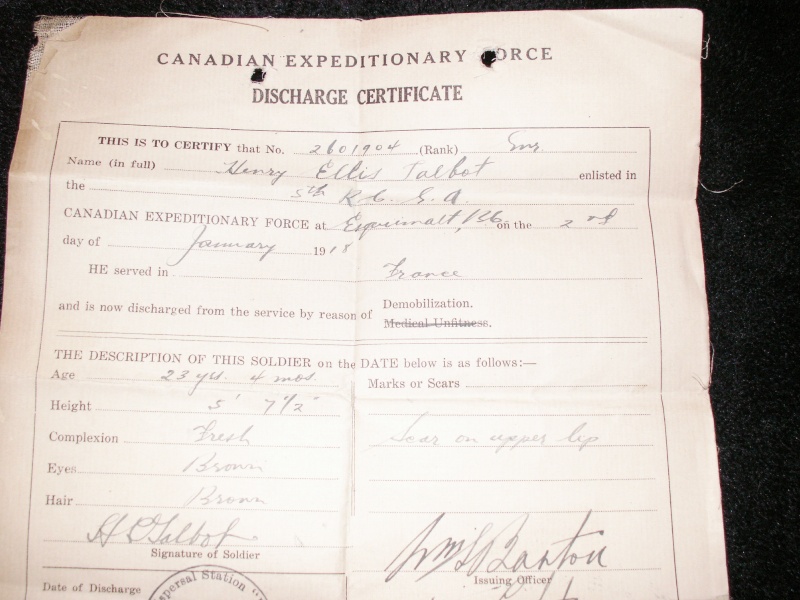 CANADIAN EXPEDITIONARY FORCE
DISCHARGE CERTIFICATE
THIS IS TO CERTIFY that No. 2601904 (Rank) Gnr
Name (in full) Henry Ellis Talbot enlisted in
the 5th R.C. G.A.
CANADIAN EXPEDITIONARY FORCE at Esquimalt, BC on the 2nd
day of January 1918
HE served in France
and is now discharged from the service by reason of Demobilization.
Medical Unfitness.
THE DESCRIPTION OF THIS SOLDIER on the DATE below is as follows:—
Age 23 yrs. 4 mos.
Marks or Scars
Height 5' 7 1/2"
Complexion Fresh
Scar on upper lip
Eyes Brown
Hair Brown
H E Talbot
Signature of Soldier
Barton
Issuing Officer
Date of Discharge
Dispersal Station